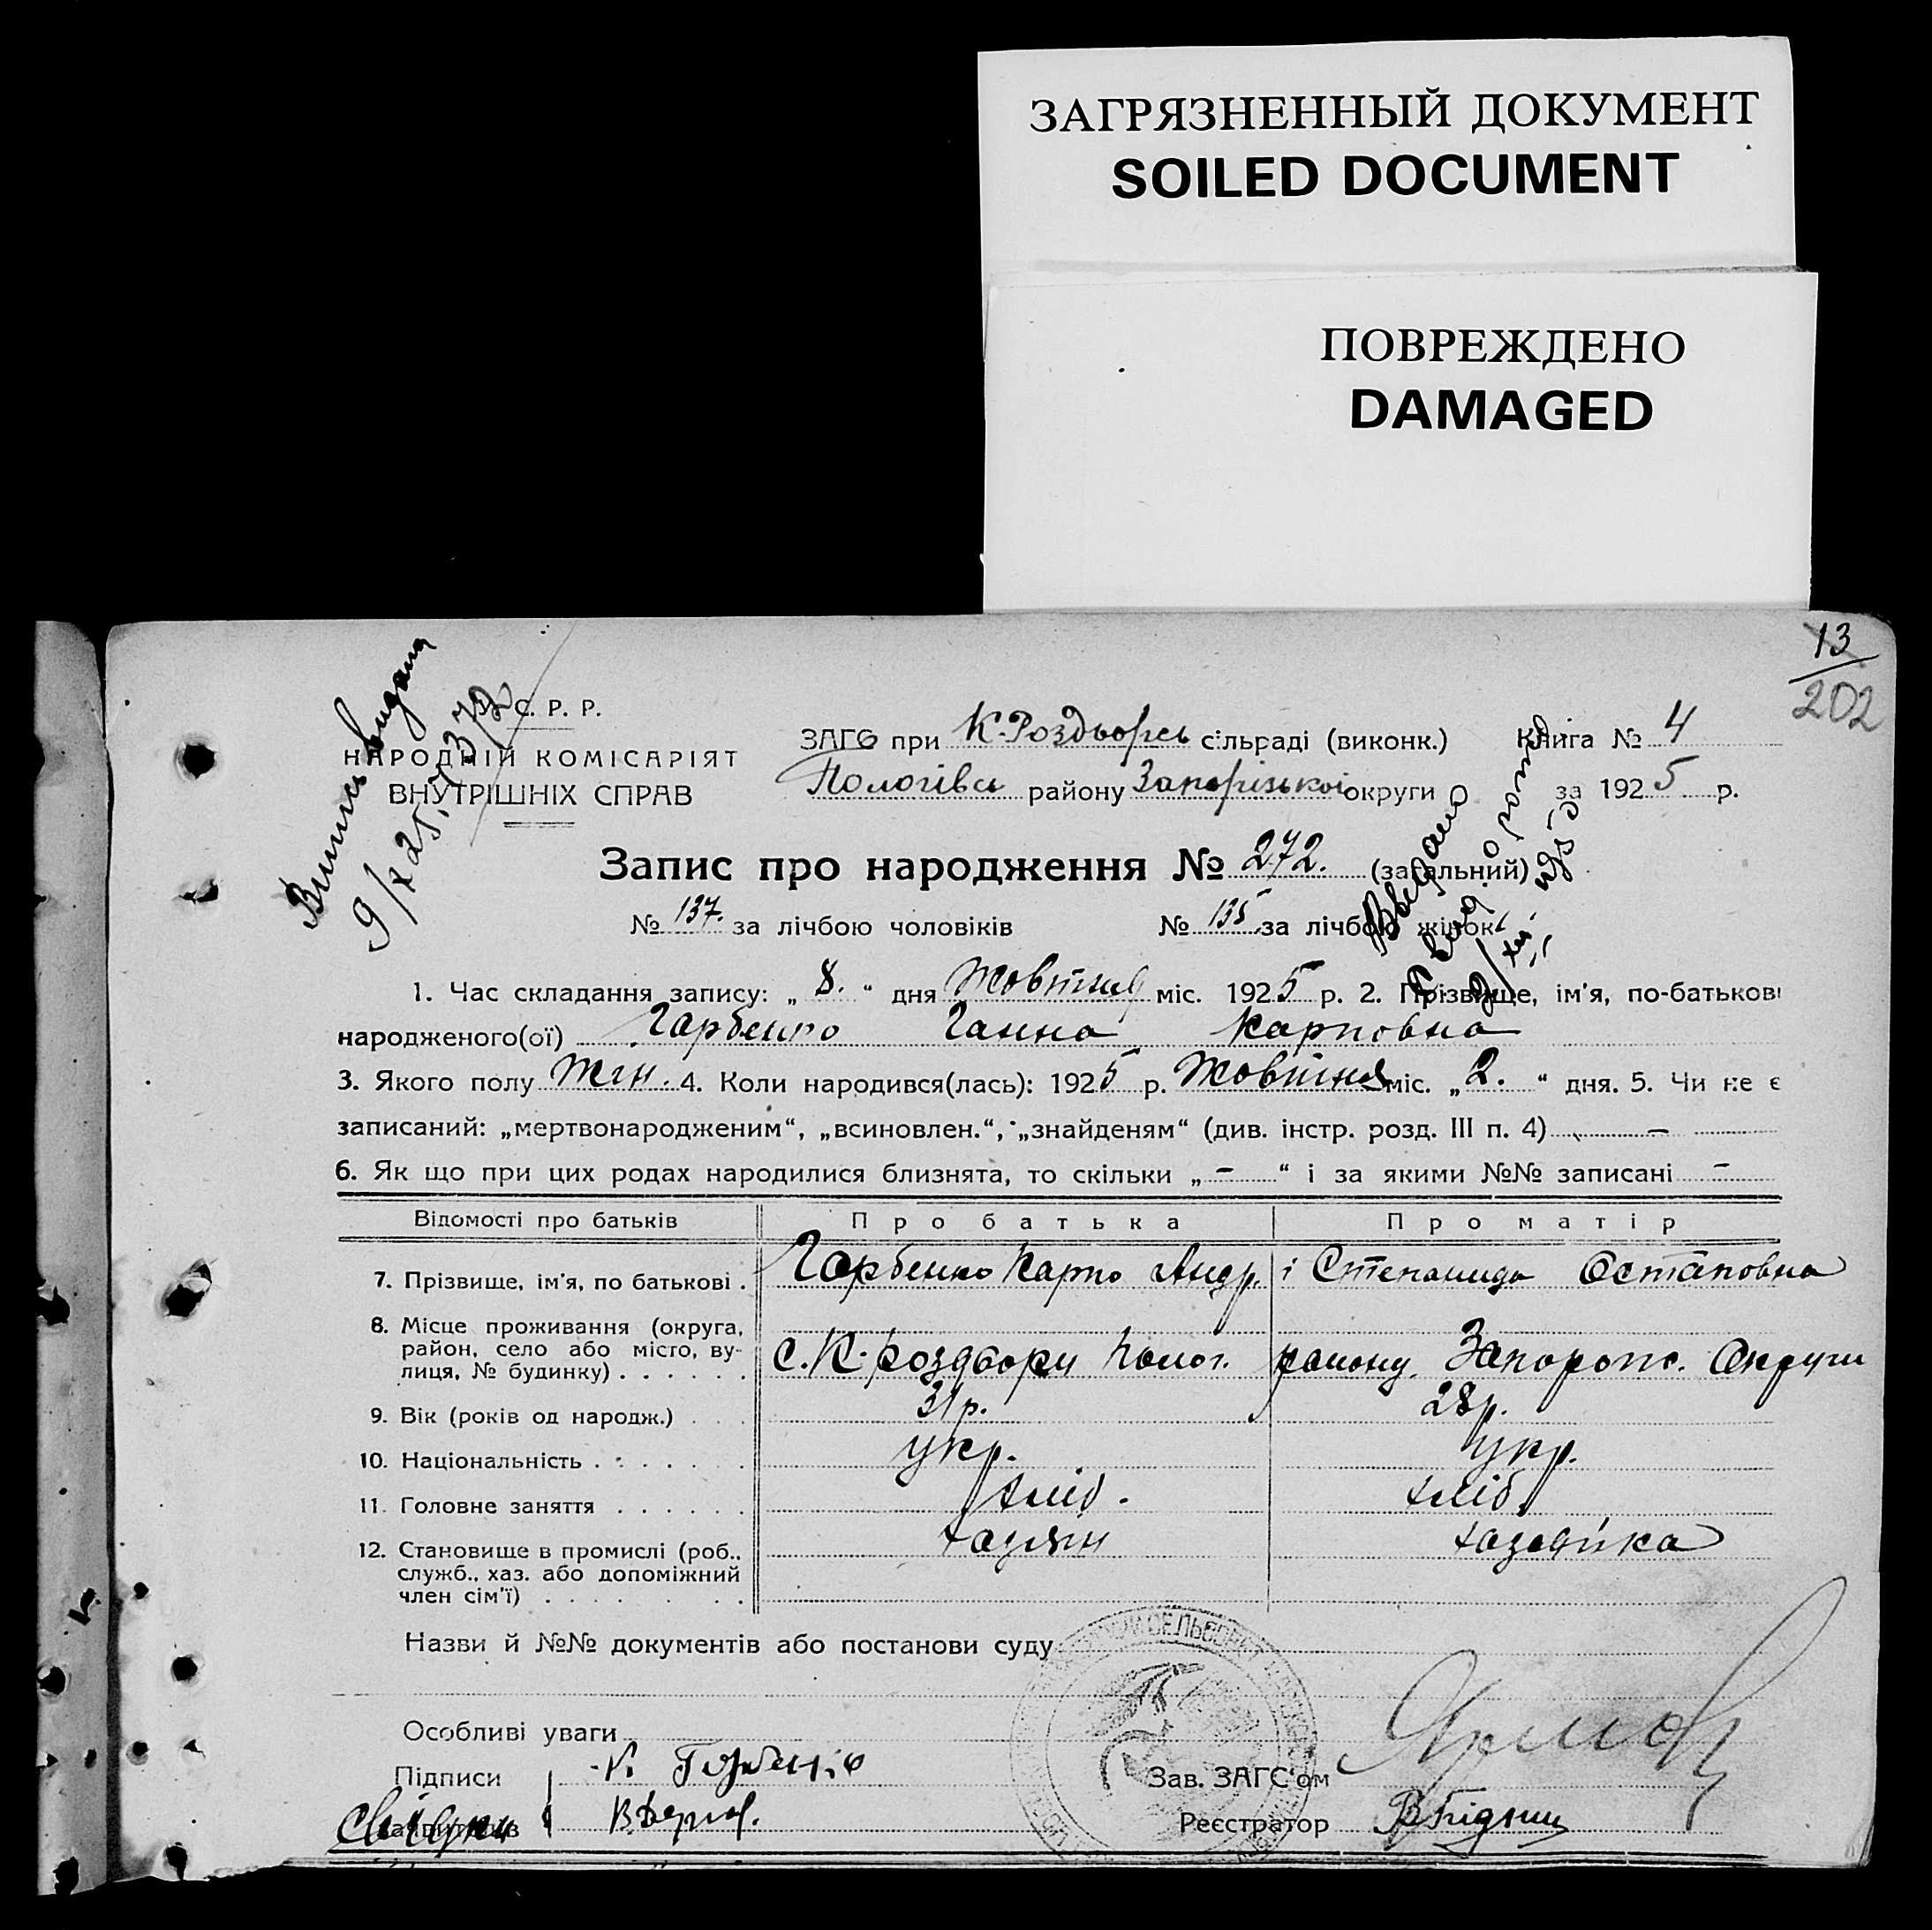 ЗАГРЯЗНЕННЫЙ ДОКУМЕНТ
SOILED DOCUMENT
ПОВРЕЖДЕНО
DAMAGED
13
202
С. Р. Р.
НАРОДНІЙ КОМІСАРІЯТ
ВНУТРІШНІХ СПРАВ
Випись видана
ЗАГС при К.-Роздорсь сільраді (виконк.) Книга № 4
Пологівсь району Запорізької округи за 1925 р.
Запис про народження № 272. (загальний)
№ 137. за лічбою чоловіків № 135 за лічбою жінок
1. Час складання запису: „ 8. “ дня Жовтня міс. 1925 р. 2. Прізвище, ім'я, по-батькові
народженого(ої) Гарбенко Ганна Карповна
3. Якого полу жін. 4. Коли народився(лась): 1925 р. Жовтня міс. „ 2. “ дня. 5. Чи не є
записаний: „мертвонародженим“, „всиновлен.“, „знайденям“ (див. інстр. розд. III п. 4) –
6. Як що при цих родах народилися близнята, то скільки „ – “ і за якими №№ записані –
Відомості про батьків Про батька Про матір
7. Прізвище, ім'я, по батькові . Гарбенко Карпо Андр. і Степанида Остаповна
8. Місце проживання (округа,
район, село або місто, ву-
лиця, № будинку) . . . . . . с. К.-Роздори Полог. району Запорож. Округи
9. Вік (років од народж.) . . . 31 р. 28 р.
10. Національність . . . . . . . укр. укр.
11. Головне заняття . . . . . . хліб. хліб.
12. Становище в промислі (роб.,
служб., хаз. або допоміжний
член сім'ї) . . . . . . . . хазяїн хазяйка
Назви й №№ документів або постанови суду
Особливі уваги
Підписи К. Гарбенко Зав. ЗАГС'ом
свідки Реєстратор